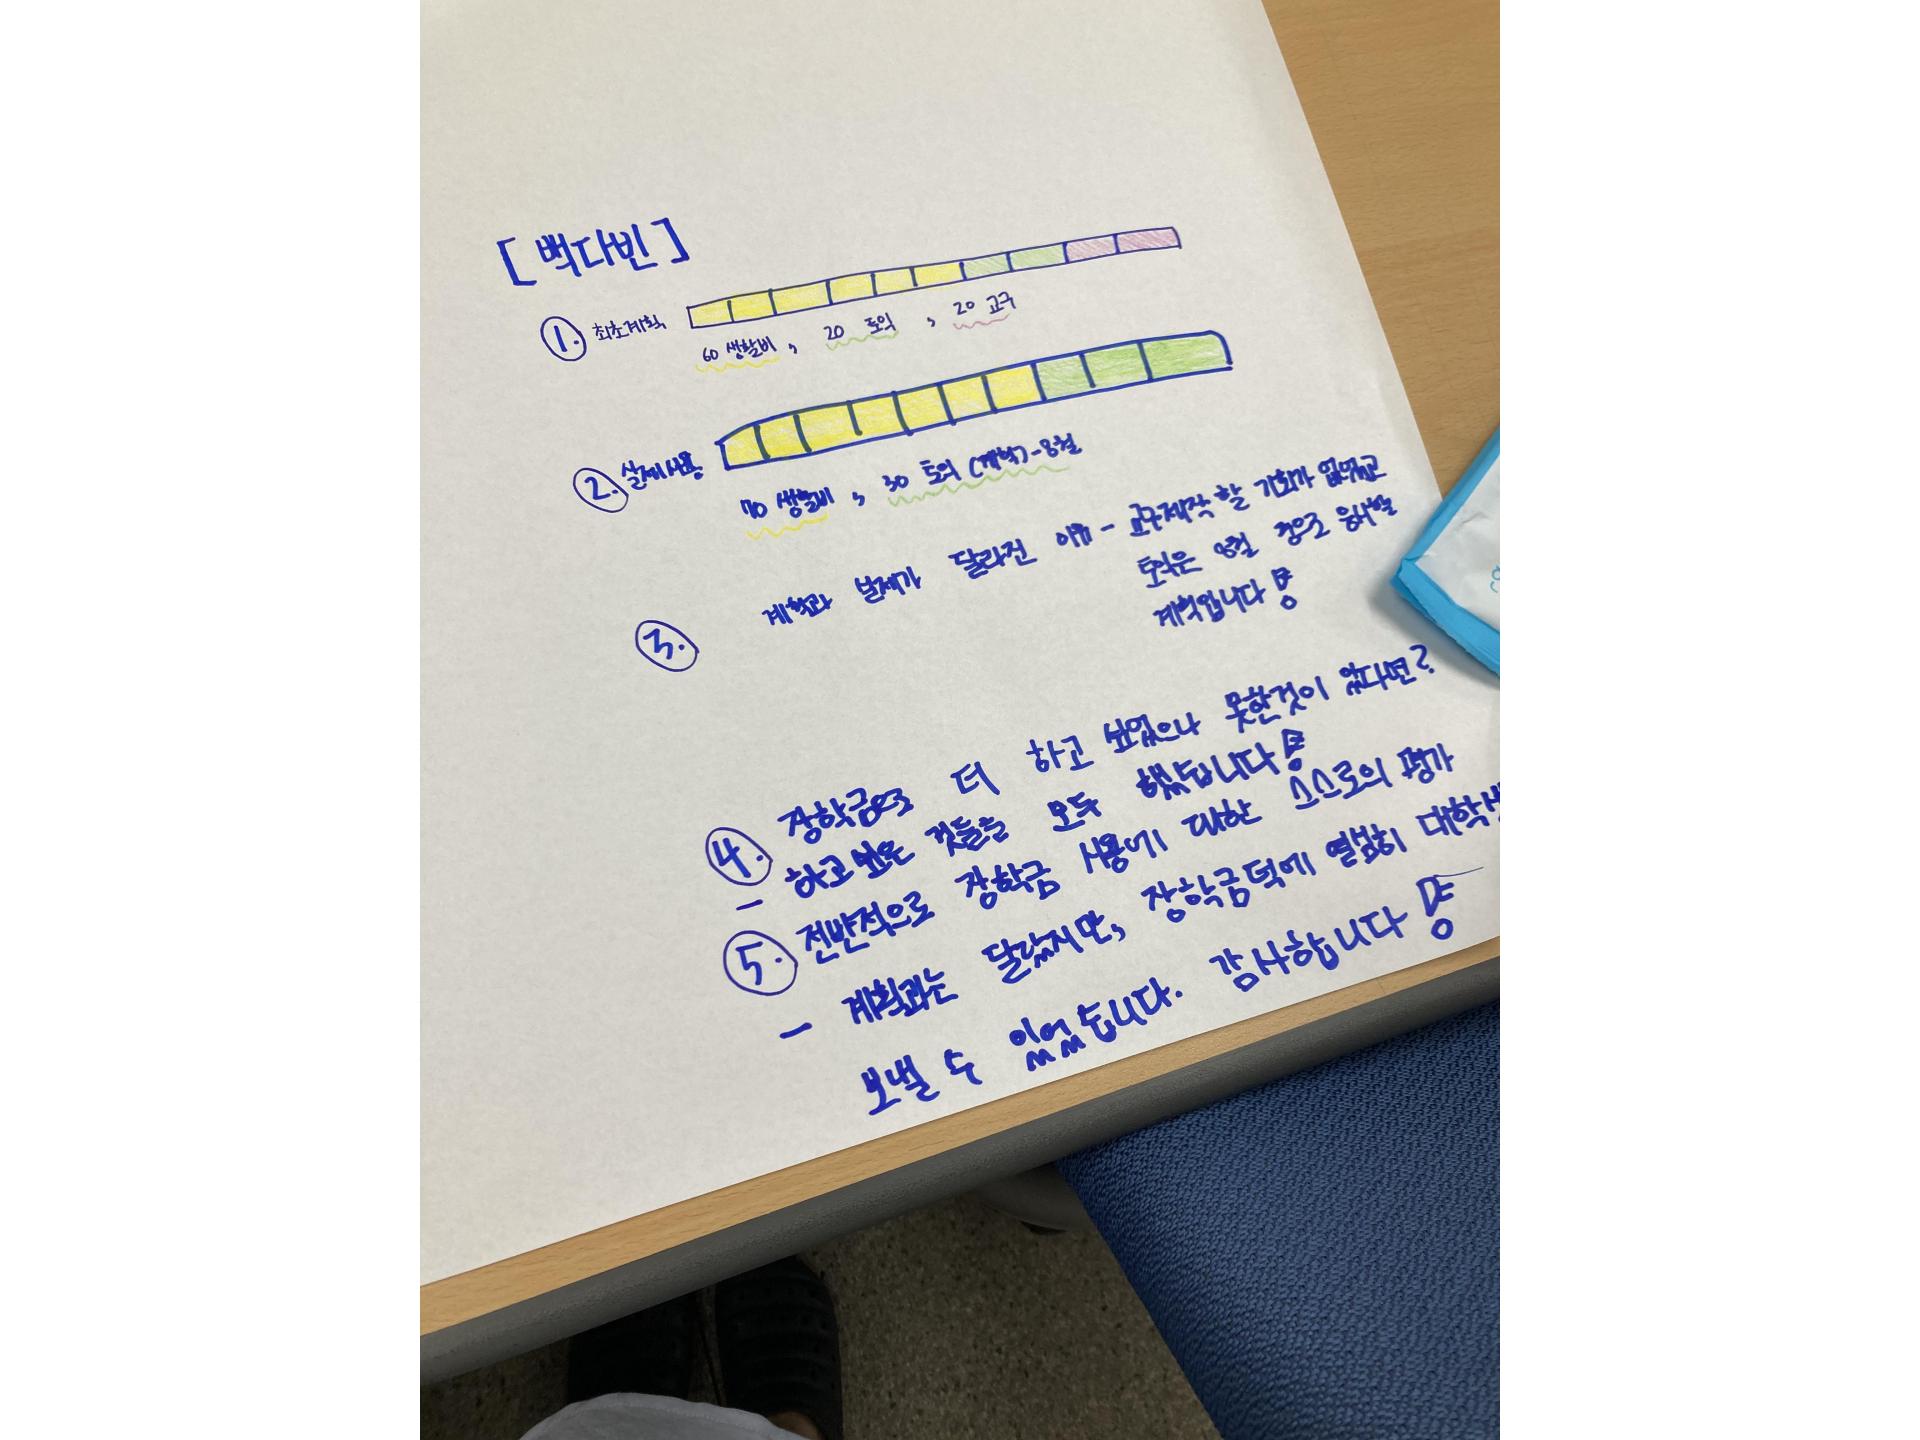 [백다빈]
① 최초계획
60 생활비, 20 토익, 20 교구
② 실제사용
70 생활비, 30 토익 (계획)-8월
③ 계획과 실제가 달라진 이유 - 교구제작 할 기회가 없었고
토익은 8월 중으로 응시할
계획입니다
④ 장학금으로 더 하고 싶었으나 못한것이 있다면?
- 하고싶은 것들을 모두 했습니다
⑤ 전반적으로 장학금 사용에 대한 스스로의 평가
- 계획과는 달랐지만, 장학금덕에 열심히 대학생
보낼 수 있었습니다. 감사합니다